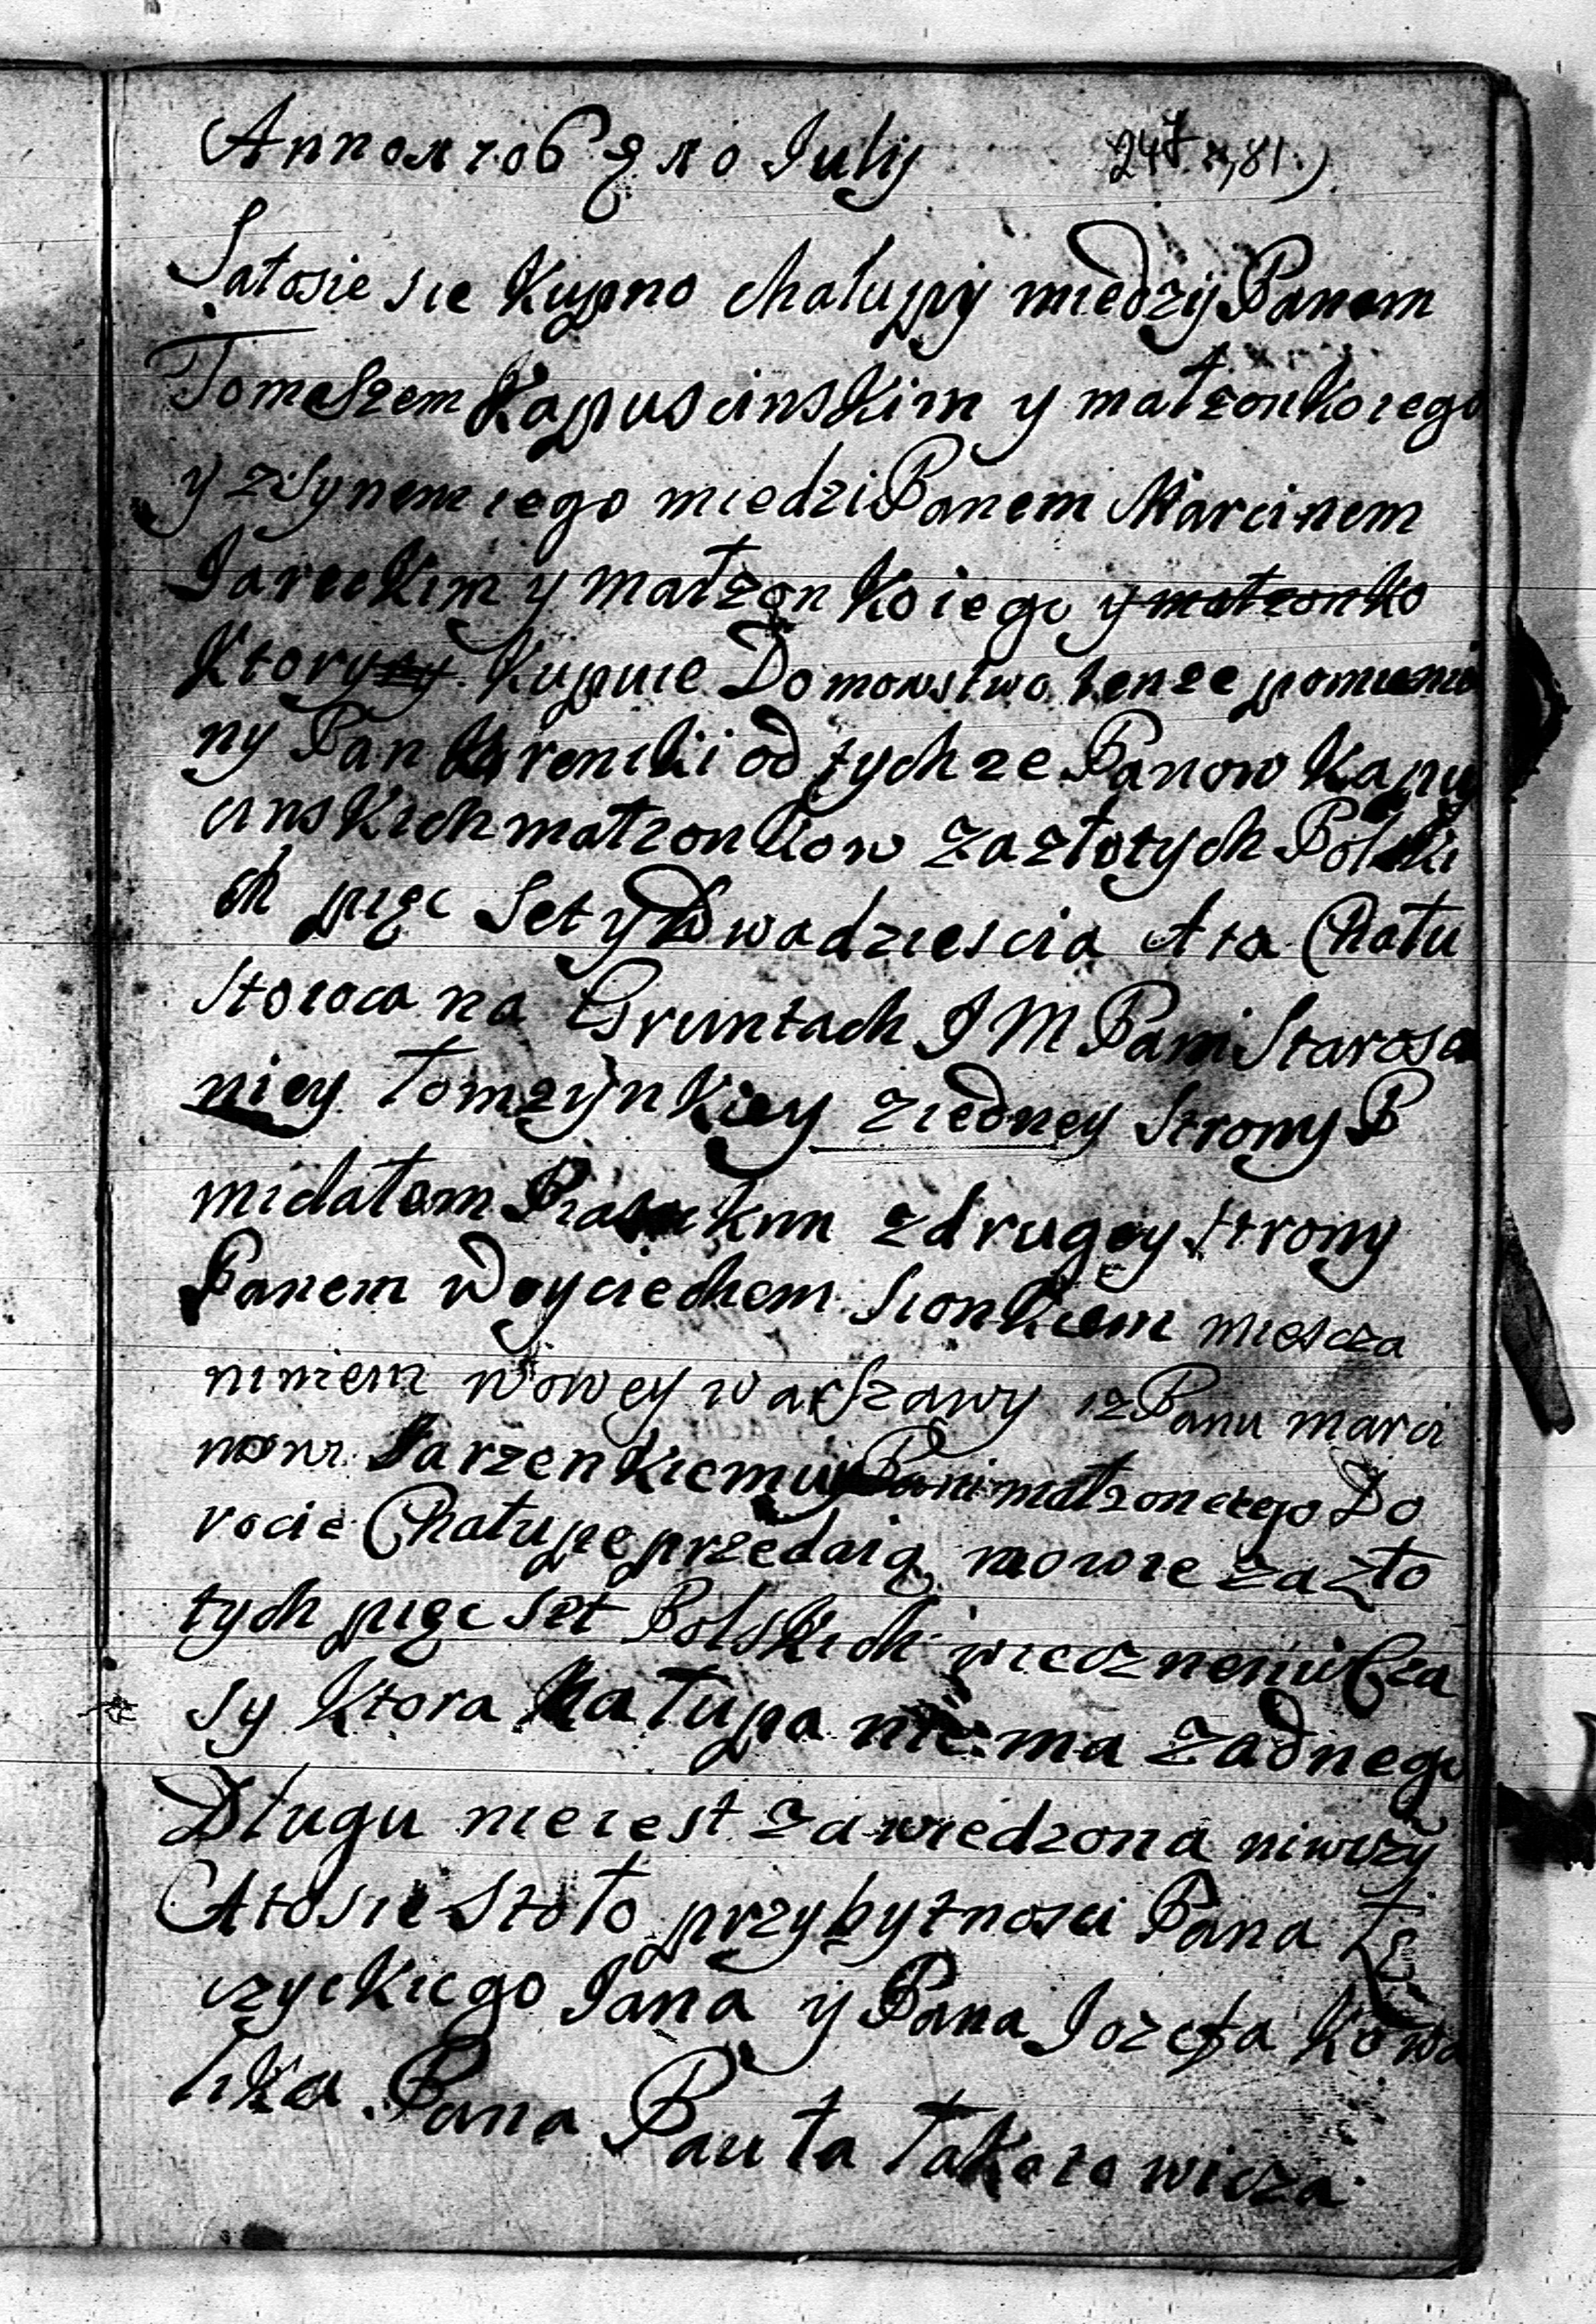 Anno 1706 d 10 July 247. 81.)
Satosie sie Kupno chałupy miedzy Panem
Tomeszem Kapuscinskim y małzonko iego
y z synem iego miedzi Panem Marcinem
Jareckim y małzonko iego y małzonko
Ktory Kupuie Domowstwo tenze pomienio
ny Pan od tych ze Panow Kapus
cinskich małzonkow za złotych Polski
ch pięc Set y Dwadziescia A ta Chału
Stoioca na Gruntach J M Pani Starosci
niey Łomzynskiey z iedney Strony P
michałem z drugey strony
Panem Woyciechem Sionkiem miescza
niniem Nowey warszawy iz Panu marci
nowi Jarzenkiemu y Pani małzonce iego Do
rocie Chałupe przedaią mowie za zło
tych pięc set Polskich wiecznemi Cza
sy Ktora hałupa nie ma zadnego
Długu nie iest zawiedzona niwczy
A to sie Stoło przy bytnosci Pana Łę
czyckiego Jana y Pana Jozefa Kowa
lika Pana Pauła